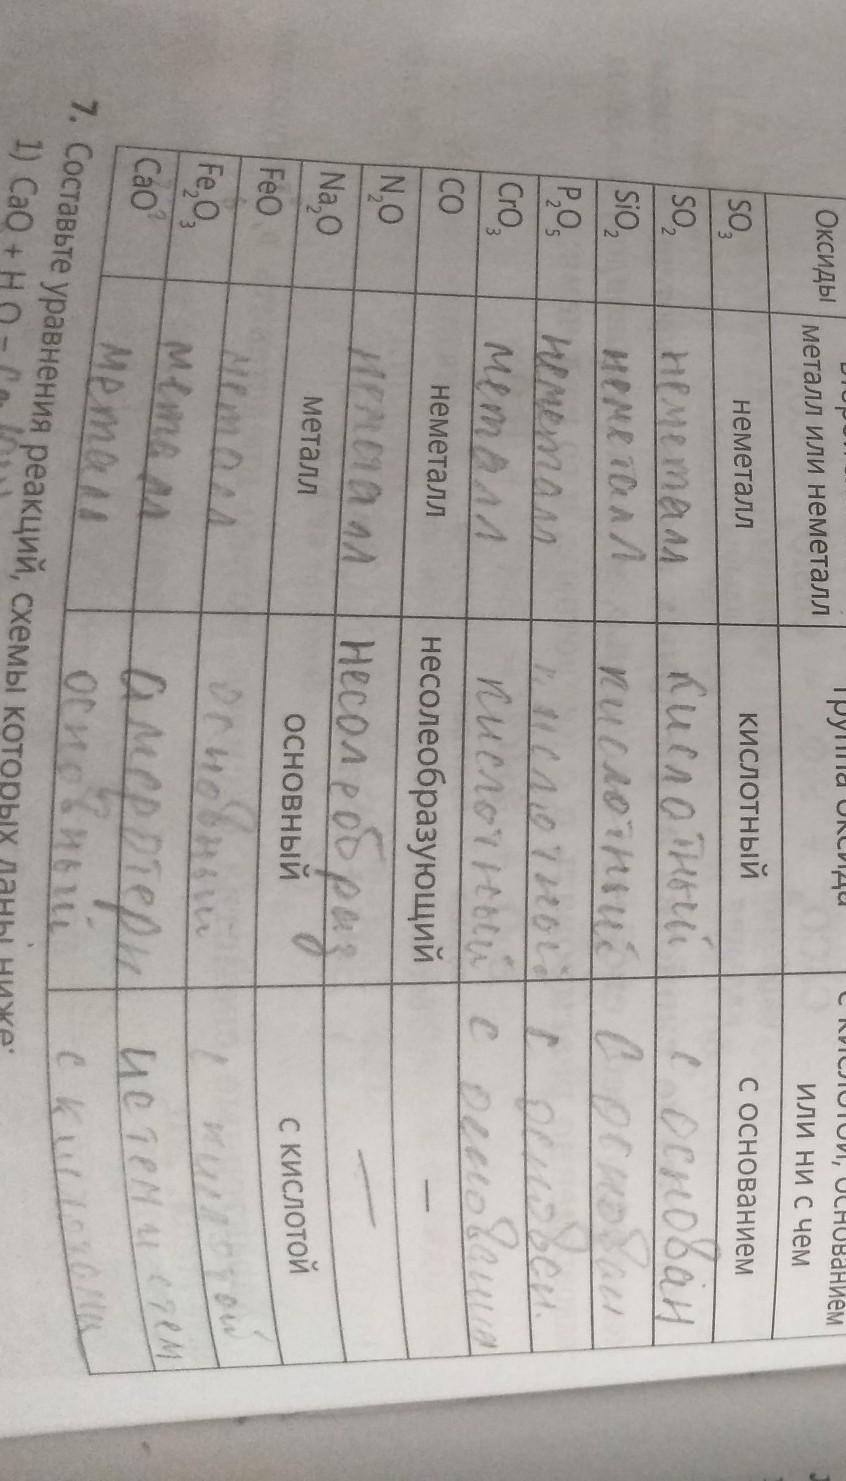 металл или неметалл
с кислотой, основанием
Оксиды
или ни с чем
SO₃ неметалл кислотный с основанием
SO₂ неметалл кислотный с основан
SiO₂ неметалл кислотный с основан
P₂O₅ неметалл кислотный с основан.
CrO₃ металл кислотный с основания
CO неметалл несолеобразующий —
N₂O неметалл несолеобраз —
Na₂O металл основный с кислотой
FeO металл основный с кислотой
Fe₂O₃ металл амфотерн и с тем и с тем
CaO металл основный с кислотами
7. Составьте уравнения реакций, схемы которых даны ниже:
1) CaO + H O =